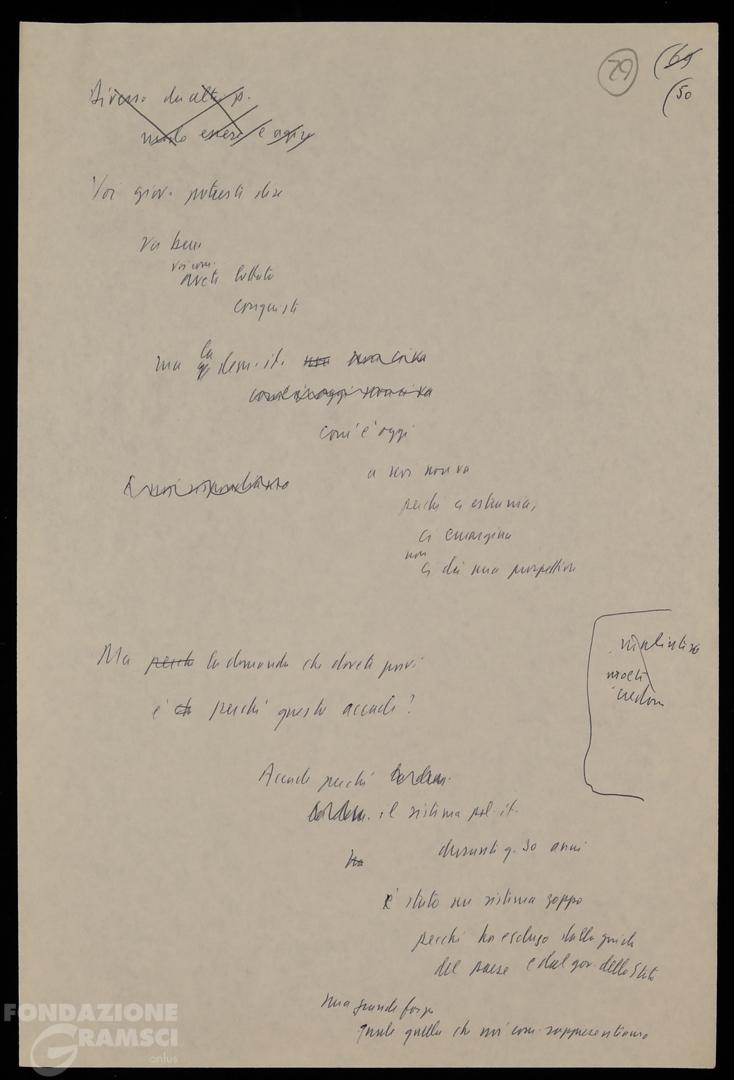 79
(65
(50
Diverso da altri p.
modo essere e agire
Voi giov. potreste dire
va bene
voi com.
avete lottato
conquiste
ma la dem. it.
com'è oggi
a noi non va
perché ci estranea,
ci emargina
non
ci dà una prospettiva
Ma perché la domanda che dovete porvi
è che perché questo accade?
Accade perché la dem.
la dem. il sistema pol. it.
ha durante q. 30 anni
è stato un sistema zoppo
perché ha escluso dalla guida
del paese e dal gov. dello Stato
una grande forza
quale quella che noi com. rappresentiamo
molti
credono
FONDAZIONE
GRAMSCI
onlus